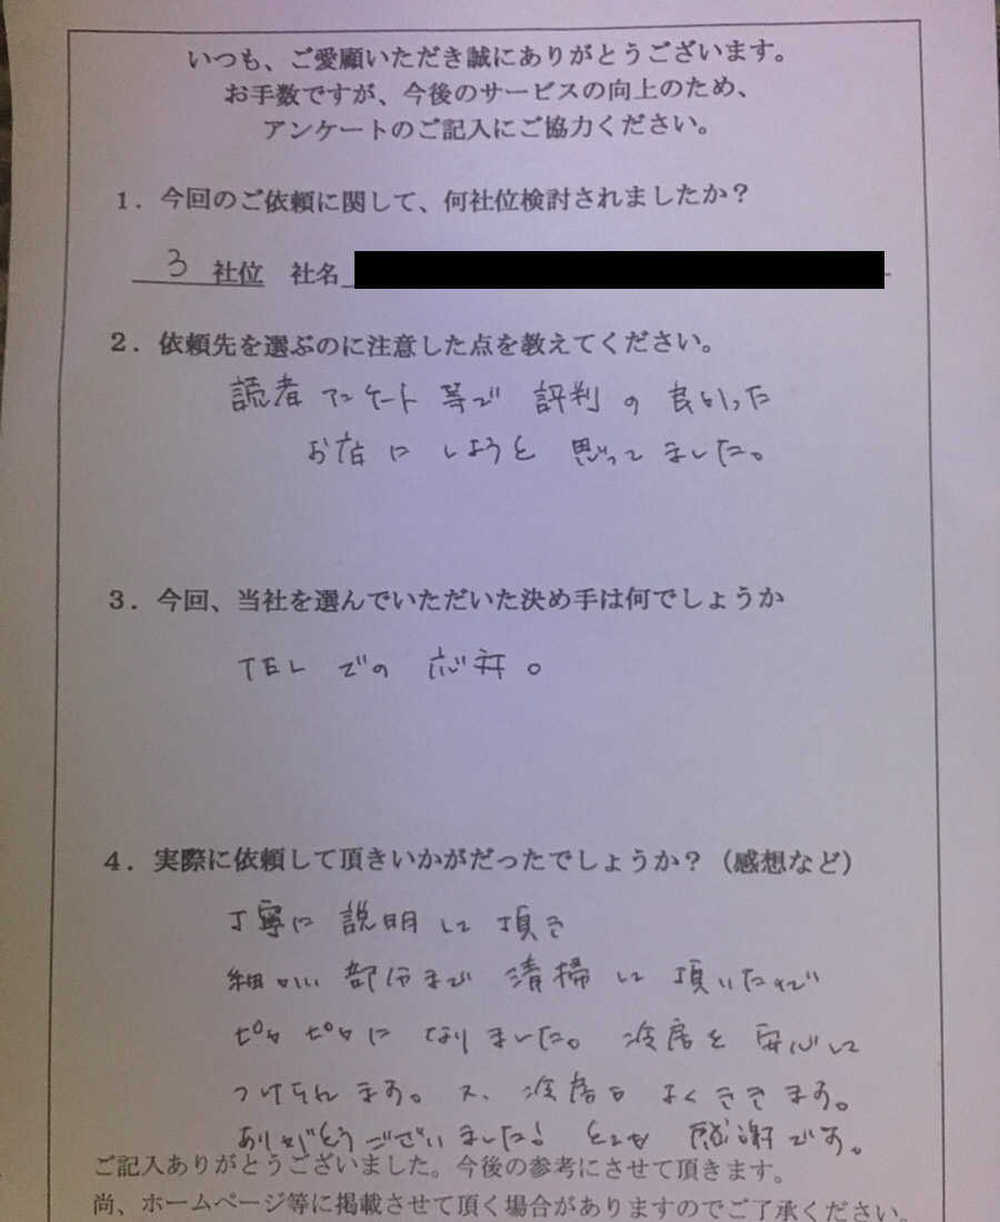 いつも、ご愛顧いただき誠にありがとうございます。
お手数ですが、今後のサービスの向上のため、
アンケートのご記入にご協力ください。
1．今回のご依頼に関して、何社位検討されましたか？
3 社位 社名
2．依頼先を選ぶのに注意した点を教えてください。
読者アンケート等で評判の良かった
お店にしようと思ってました。
3．今回、当社を選んでいただいた決め手は何でしょうか
TELでの応対。
4．実際に依頼して頂きいかがだったでしょうか？（感想など）
丁寧に説明して頂き
細かい部分まで清掃して頂いたので
ピカピカになりました。冷房を安心して
つけられます。又、冷房もよくききます。
ありがとうございました！とても感謝です。
ご記入ありがとうございました。今後の参考にさせて頂きます。
尚、ホームページ等に掲載させて頂く場合がありますのでご了承ください。